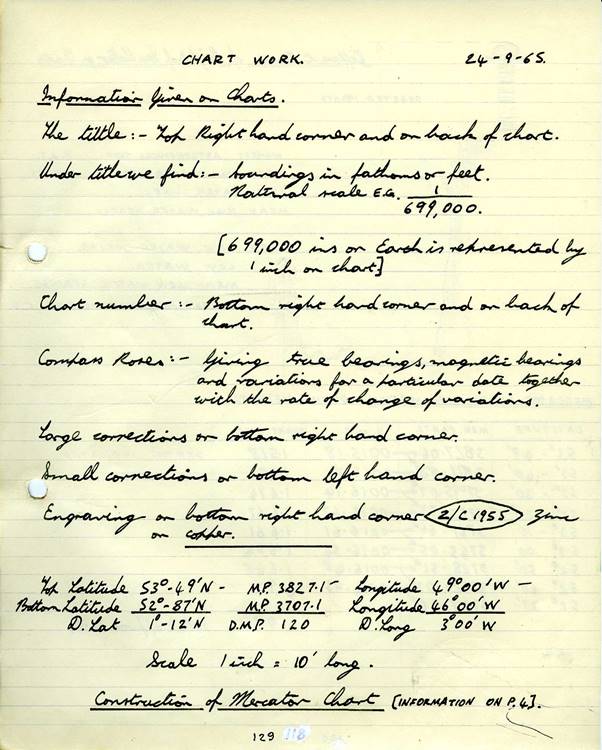 CHART WORK. 24-9-65.
Information Given on Charts.
The tittle :- Top Right hand corner and on back of chart.
Under title we find :- Soundings in fathoms or feet.
Natural scale E.G. 1/699,000.
[699,000 ins on Earth is represented by
1 inch on chart]
Chart number :- Bottom right hand corner and on back of
chart.
Compass Roses :- Giving true bearings, magnetic bearings
and variations for a particular date together
with the rate of change of variations.
Large corrections on bottom right hand corner.
Small corrections on bottom left hand corner.
Engraving on bottom right hand corner Z/C 1955 Zinc
on copper.
Top Latitude 53°-49'N - M.P. 3827.1 - Longitude 49°00'W -
Bottom Latitude 52°-87'N M.P. 3707.1 Longitude 46°00'W
D. Lat 1°-12'N D.M.P. 120 D. Long 3°00'W
Scale 1 inch = 10' long.
Construction of Mercator Chart [INFORMATION ON P.4].
129 118